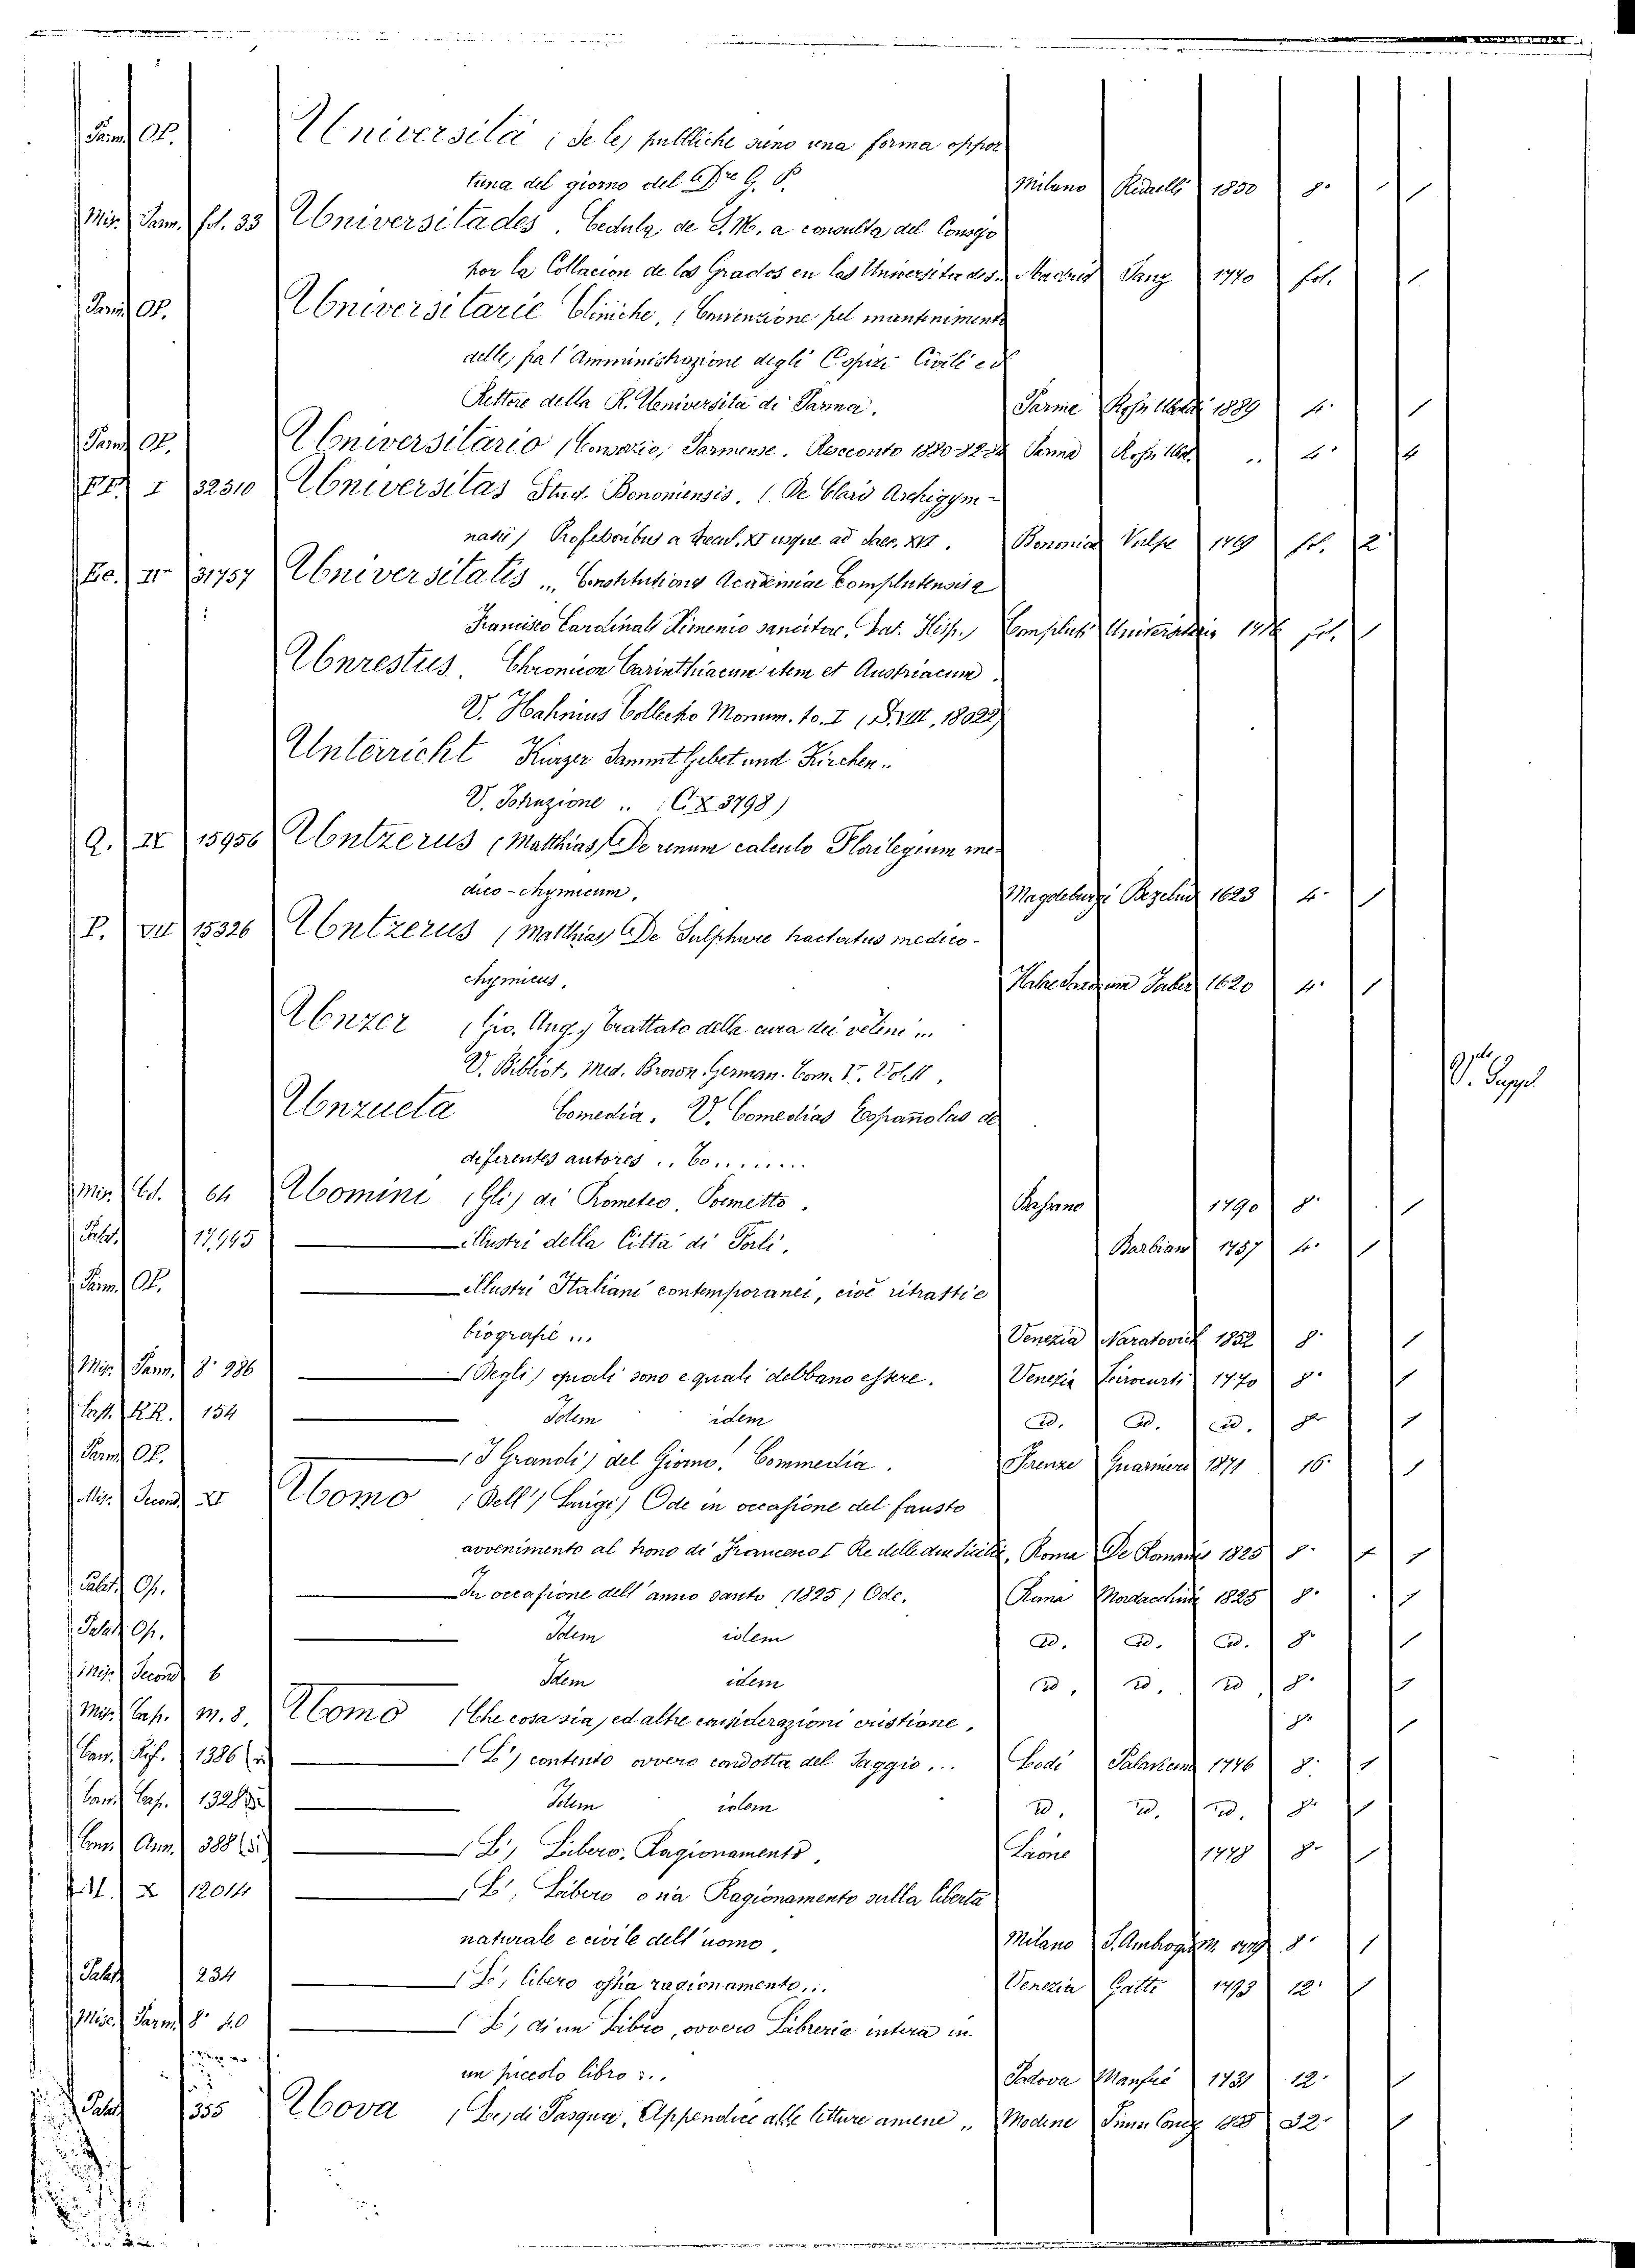 Parm. OP. Università (Se le) pubbliche sieno una forma oppor
tuna del giorno del G. P. Milano Redaelli 1850 8° 1
Mis. Parm. fol. 33 Universitades. Cedula de S. M. a consulta del Consejo
por la Collacion de los Grados en las Universitades. Madrid Sanz 1770 fol. 1
Parm. OP. Universitarie Cliniche, (Convenzione pel mantenimento
delle) fra l'Amministrazione degli Ospizi Civili ed il
Rettore della R. Università di Parma. Parma Rossi Ubaldi 1889 4° 1
Parm. OP. Universitario (Consorzio) Parmense. Rocconto Parma Rossi Ubal. .. 4° 4
I 32310 Universitas Stud. Bononiensis. (De Claris Archigym-
nasii) Professoribus a saecul. XI usque ad saec. XIV. Bononiae Vulpe 1769 fol. 2
II 31757 Universitatis ... Constitutiones Academiae Complutensis a
Francisco Cardinali Ximenio sancitae. Lat. Hisp. Compluti Universitatis fol. 1
Unrestus. Chronicon Carinthiacum item et Austriacum.
V. Hahnius Collectio Monum. to. I (S. VIII, 18022)
Unterricht Kurzer Sammt Gebet und Kirchen..
V. Istruzione .. (C. X 3798)
Q. IV 15956 Untzerus (Matthias) De renum calculo Florilegium me-
dico-chymicum. Magdeburgi Bezelius 1623 4° 1
P. VII 15326 Untzerus (Matthias) De Sulphure tractatus medico-
chymicus. Faber 1620 4° 1
Unzer (Gio. Aug.) Trattato della cura dei veleni ...
V. Bibliot. Med. Brown. German. Tom. V.
V. Suppl.
Unzueta Comedia. V. Comedias Españolas de
diferentes autores .. To.......
Mis. Ed. 64 Uomini (Gli) di Prometeo. Poemetto. Bassano 1790 8° 1
Palat. 17,995 ——— illustri della Città di Forlì. Barbiani 1757 4° 1
Parm. OP. ——— illustri Italiani contemporanei, cioè ritratti e
biografie ... Venezia Naratovich 1852 8° 1
Mis. Parm. 8° 286 ——— (Degli) quali sono e quali debbano essere. Venezia 1770 8° 1
Cass. RR. 154 ——— Idem idem id. id. id. 8° 1
Parm. OP. ——— (I Grandi) del Giorno. Commedia. Firenze Guarnieri 1871 16° 1
Misc. Second. XI Uomo (Dell') Luigi) Ode in occasione del fausto
avvenimento al trono di Francesco I Re delle due Sicilie. Roma De Romanis 1825 8° 1
Palat. Op. ——— In occasione dell'anno santo (1825) Ode. Roma Mordacchini 1825 8° 1
Palat. Op. ——— Idem idem id. id. id. 8° 1
Misc. Second. 6 ——— Idem idem id. id. id. 8° 1
Mis. Cap. M. 8, Uomo (Che cosa sia) ed altre considerazioni cristiane. 8° 1
Can. Rif. 1386 ——— (L') contento ovvero condotta del Saggio ... Lodi 1746 8° 1
Can. Cap. 1328 ——— Idem idem id. id. id. 8° 1
Can. Ann. 388 (5.) ——— (L') Libero. Ragionamento. Lione 1778 8° 1
X 12014 ——— (L') Libero o sia Ragionamento sulla libertà
naturale e civile dell'uomo. Milano S. Ambrogio M. 8° 1
Palat. 234 ——— (L') libero ossia ragionamento... Venezia Gatti 1793 12° 1
Misc. Parm. 8° 40 ——— (L') di un Libro, ovvero Libreria intera in
un piccolo libro ... Padova Manfrè 1731 12° 1
Palat. 355 Uova (Le) di Pasqua. Appendice alle letture amene .. Modena 32° 1